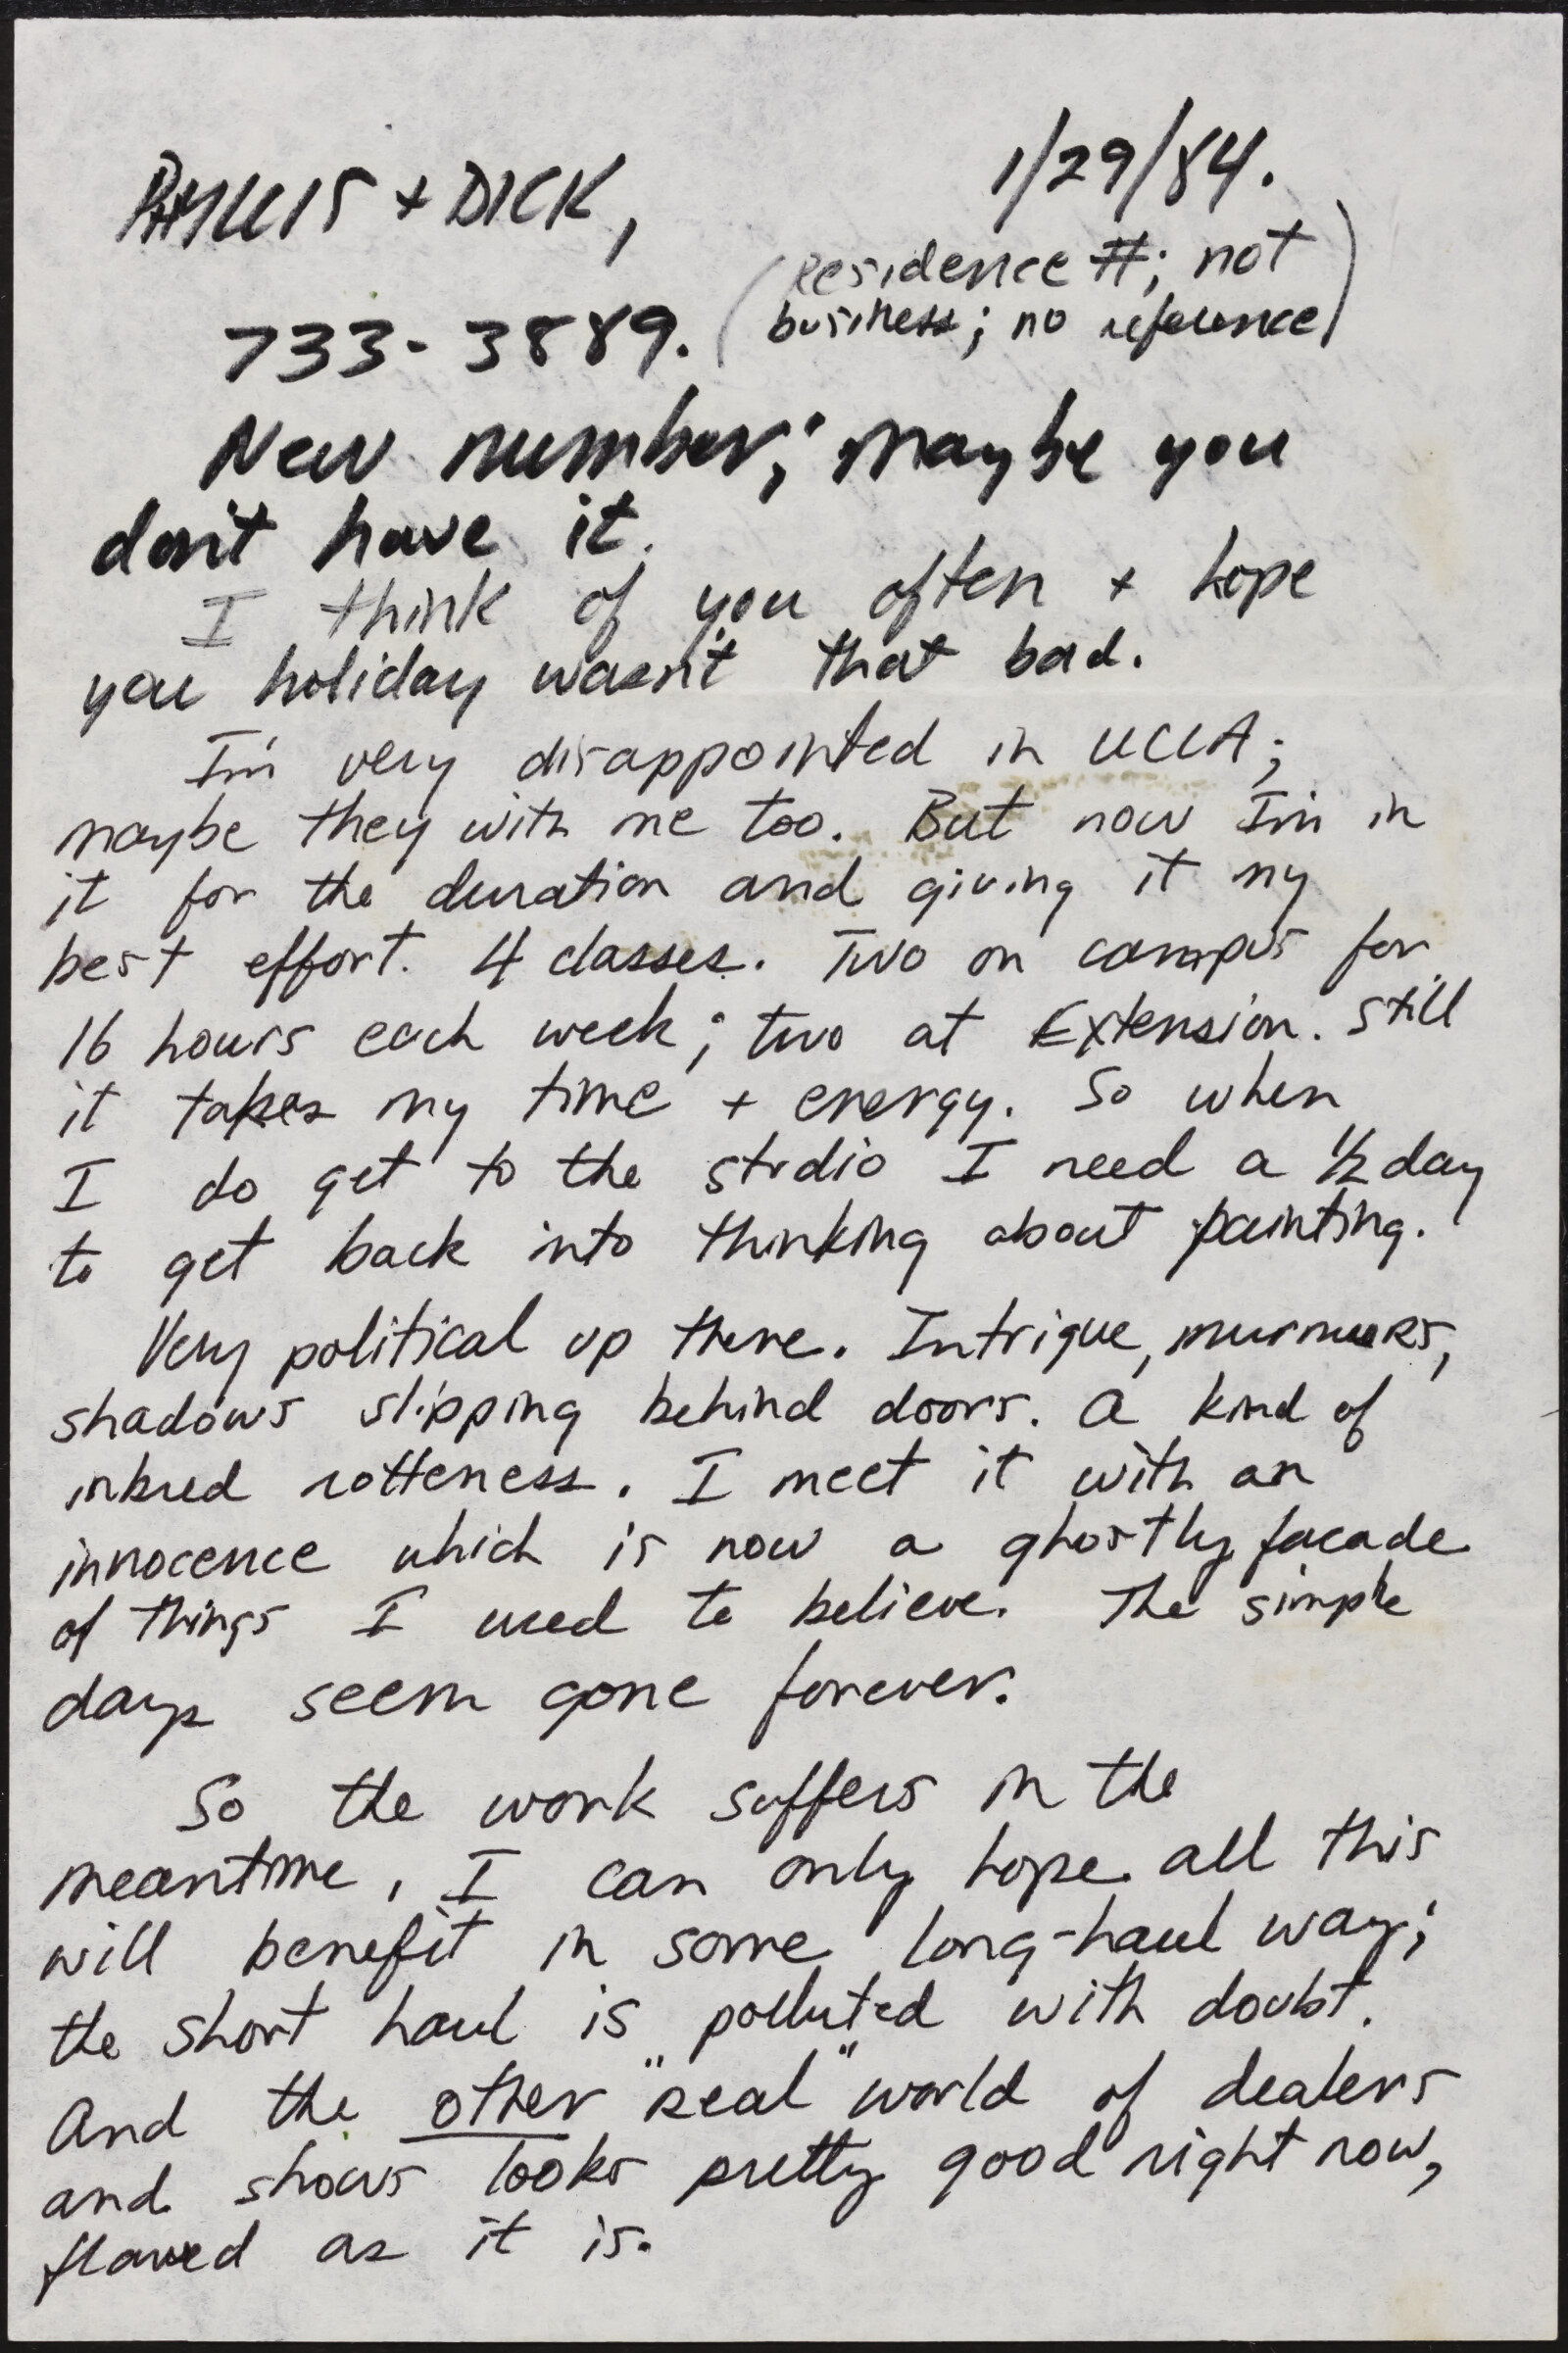 1/29/84.
PHYLLIS + DICK,
(Residence #; not
business; no reference)
733-3889.
New number; maybe you
don't have it.
I think of you often + hope
you holiday wasn't that bad.
I'm very disappointed in UCLA;
maybe they with me too. But now I'm in
it for the duration and giving it my
best effort. 4 classes. Two on campus for
16 hours each week; two at Extension. Still
it takes my time + energy. So when
I do get to the studio I need a 1/2 day
to get back into thinking about painting.
Very political up there. Intrigue, murmurs,
shadows slipping behind doors. A kind of
inbred rotteness. I meet it with an
innocence which is now a ghostly facade
of things I used to believe. The simple
days seem gone forever.
So the work suffers in the
meantime, I can only hope all this
will benefit in some long-haul way;
the short haul is polluted with doubt.
And the other "real" world of dealers
and shows looks pretty good right now,
flawed as it is.